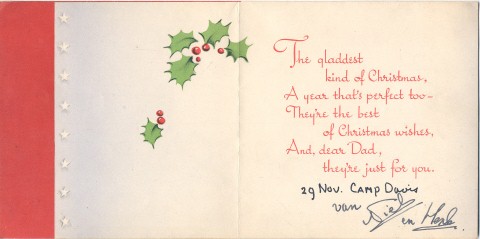 The gladdest
kind of Christmas,
A year that's perfect too—
They're the best
of Christmas wishes,
And, dear Dad,
they're just for you.
29 Nov. CAMP Davis
van
en